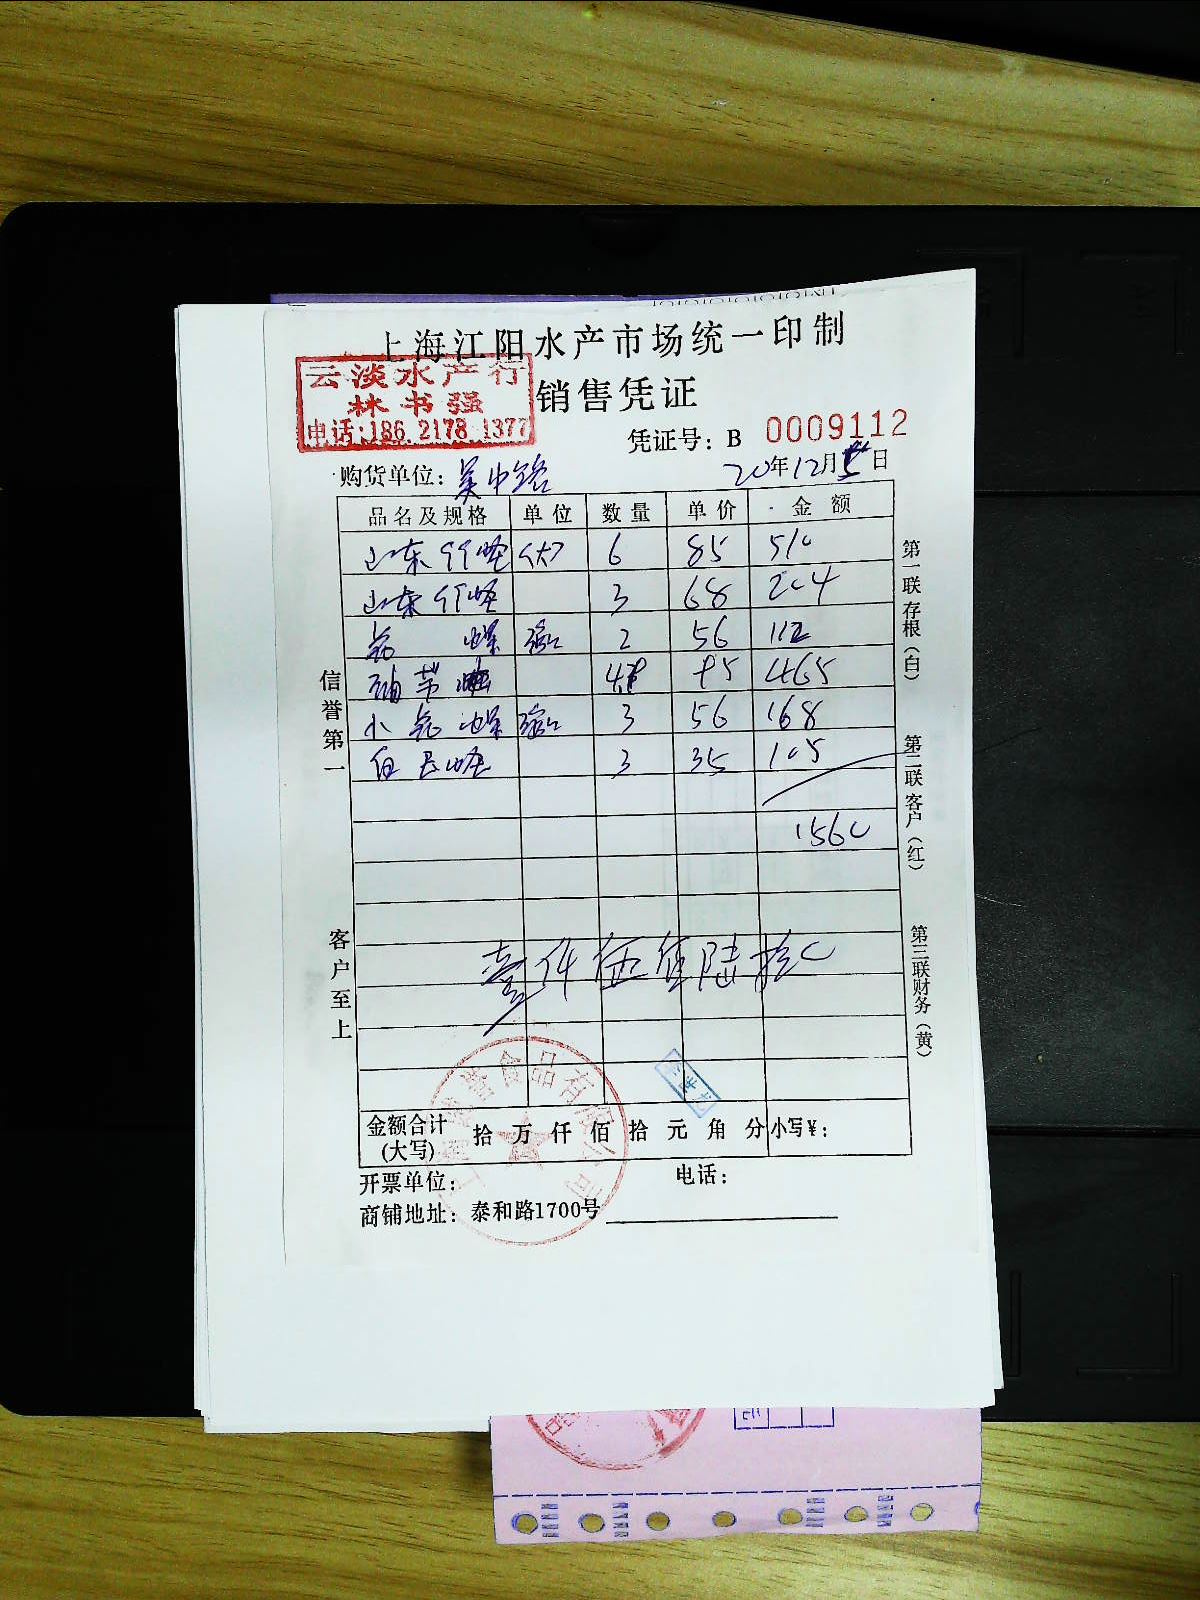 上海江阳水产市场统一印制
云淡水产行
林书强
电话:186 2178 1377
销售凭证
凭证号: B 0009112
购货单位: 吴中路 20年12月5日
品名及规格 单位 数量 单价 金额
山东竹蛏 (大) 6 85 510
山东竹蛏 3 68 204
2 56 112
465
小 3 56 168
3 35 105
1560
壹仟伍佰陆拾
金额合计(大写) 拾 万 仟 佰 拾 元 角 分 小写¥:
开票单位: 电话:
商铺地址: 泰和路1700号
信誉第一
客户至上
第一联存根(白)
第二联客户(红)
第三联财务(黄)
食品有限公司